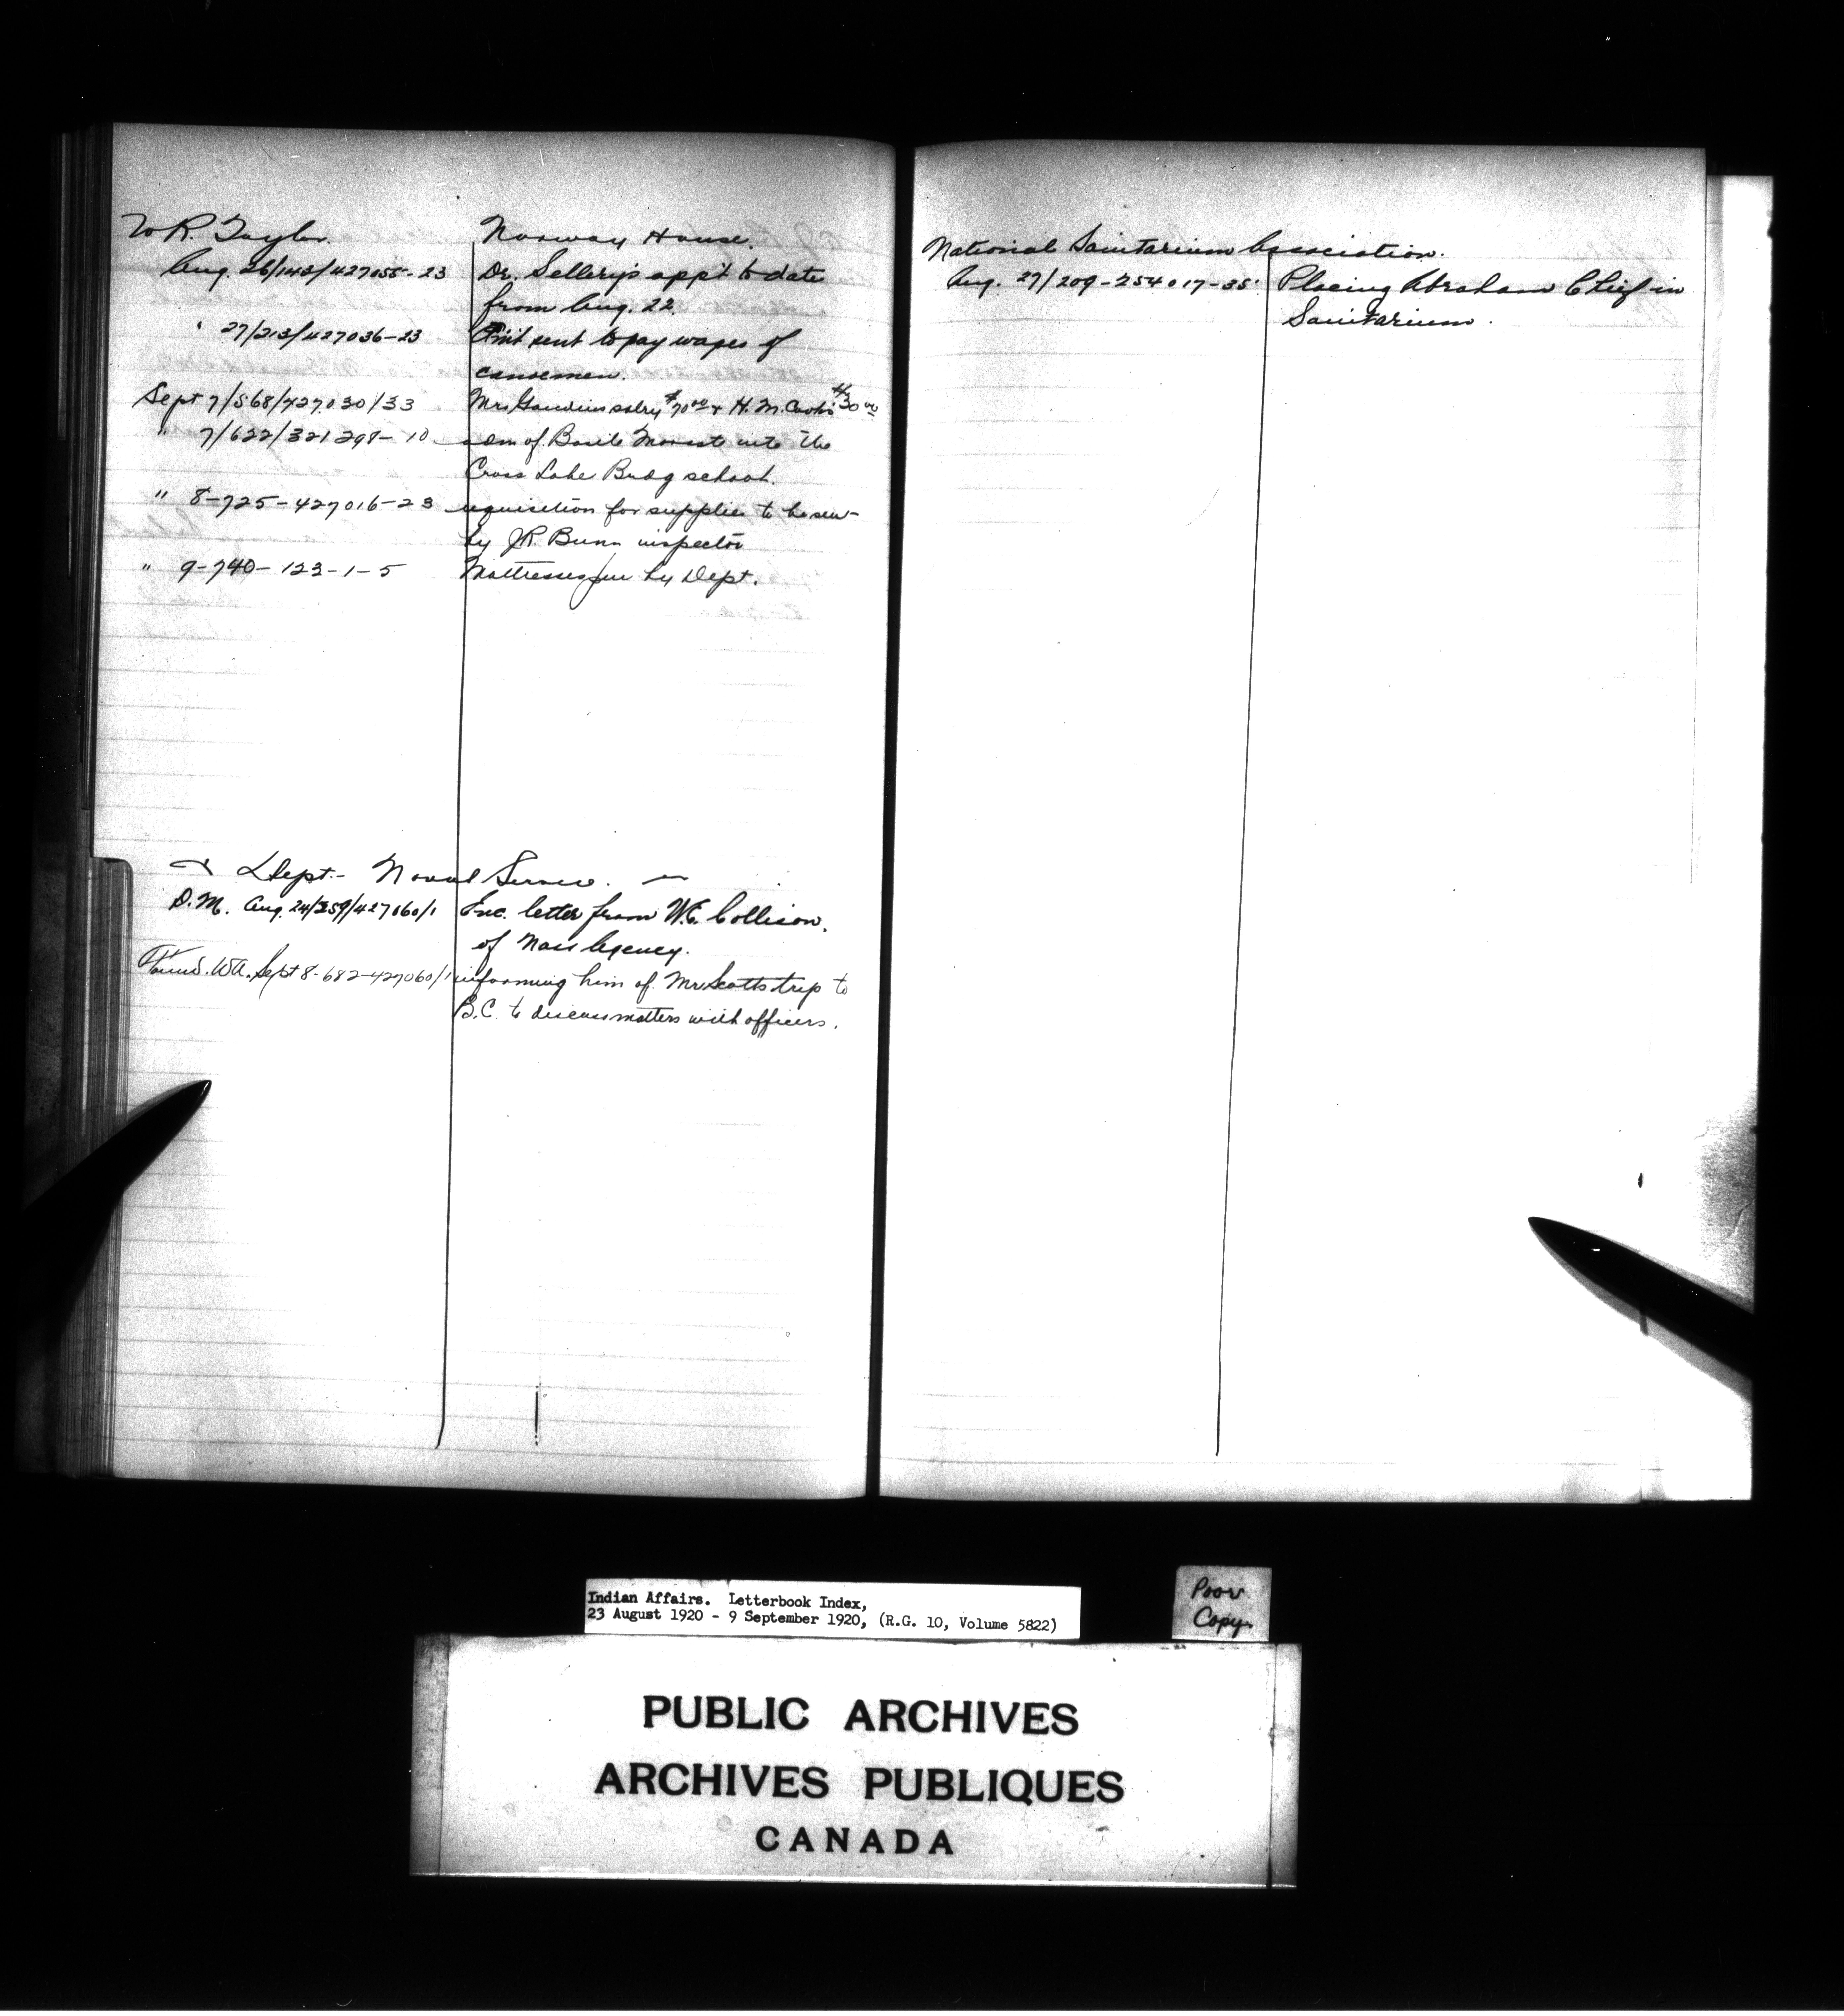 W R. Taylor. Norway House.
Aug. 26/143/427055-23 Dr. Sellery's app't to date
from Aug. 22.
" 27/213/427036-23 Am't sent to pay wages of
canoemen.
Sept 7/568/427030/33 Mrs Gaudins salry $70.00 & H. M. Cooks $30.00
" 7/622/321298-10 adm of Basile into the
Cross Lake Brdg school.
" 8-725-427016-23 requisition for supplies to be sen-
by J.R. Bunn inspector
" 9-740-123-1-5 Mattresses pur by Dept.
Dept. Naval Service.
D.M. Aug. 24/359/427060/1 Enc. letter from W.E. Collison.
of Nass Agency.
Found. WA. Sept 8-682-427060/1 informing him of Mr Scotts trip to
B.C. to discuss matters with officers.
National Sanitarium Association.
Aug. 27/209-254017-35 Placing Abraham Chief in
Sanitarium.
Indian Affairs. Letterbook Index,
23 August 1920 - 9 September 1920, (R.G. 10, Volume 5822)
Poor
Copy.
PUBLIC ARCHIVES
ARCHIVES PUBLIQUES
CANADA